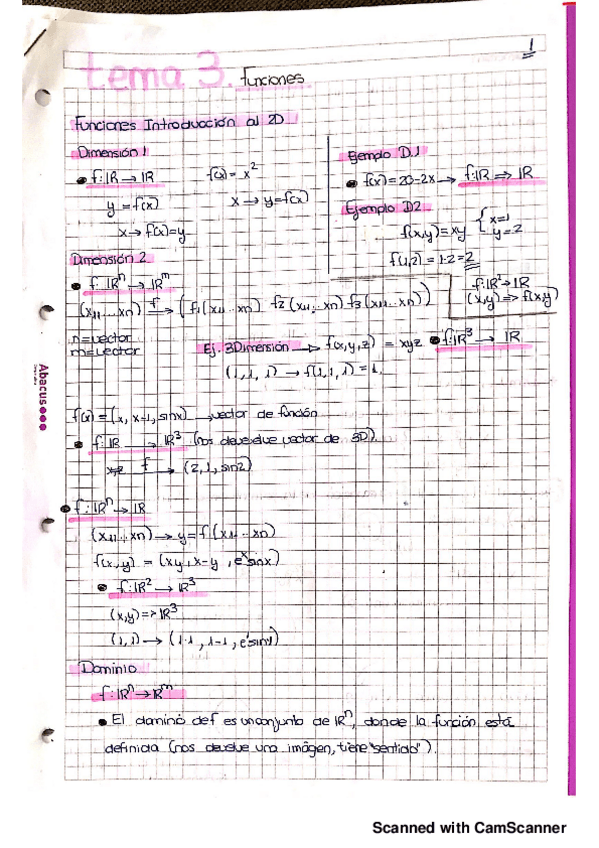 1
tema 3. Funciones
Funciones Introducción al 2D
Dimensión 1
• f: ℝ → ℝ
f(x) = x²
y = f(x)
x → y=f(x)
x → f(x)=y
Ejemplo D.1
• f(x)=20-2x → f: ℝ ⇒ ℝ
Ejemplo D2
f(x,y)=xy { x=1
y=2
f(1,2) = 1·2=2
Dimensión 2
• f: ℝⁿ → ℝᵐ
(x₁, ... xn) f→ (f₁(x₁ ... xn) f₂(x₁, ... xn) f₃(x₁, ... xn))
f: ℝ² → ℝ
(x,y) => f(x,y)
n=vector
m=vector
Ej. 3Dimensión → f(x,y,z) = xyz • f: ℝ³ → ℝ
(1,1,1) → f(1,1,1) = 1.
Abacus
f(x) = (x, x-1, sinx) → vector de función
• f: ℝ → ℝ³ (nos devuelve vector de 3D)
f → (2,1, sin2)
• f: ℝⁿ → ℝ
(x₁, ... xn) → y = f(x₁, ... xn)
f(x,y) = (xy, x-y, eˣsinx)
• f: ℝ² → ℝ³
(x,y) => ℝ³
(1,1) → (1·1, 1-1, e¹sin1)
Dominio
f: ℝⁿ → ℝᵐ
• El domino def es un conjunto de ℝⁿ, donde la función está
definida (nos devuelve una imágen, tiene "sentido").
Scanned with CamScanner